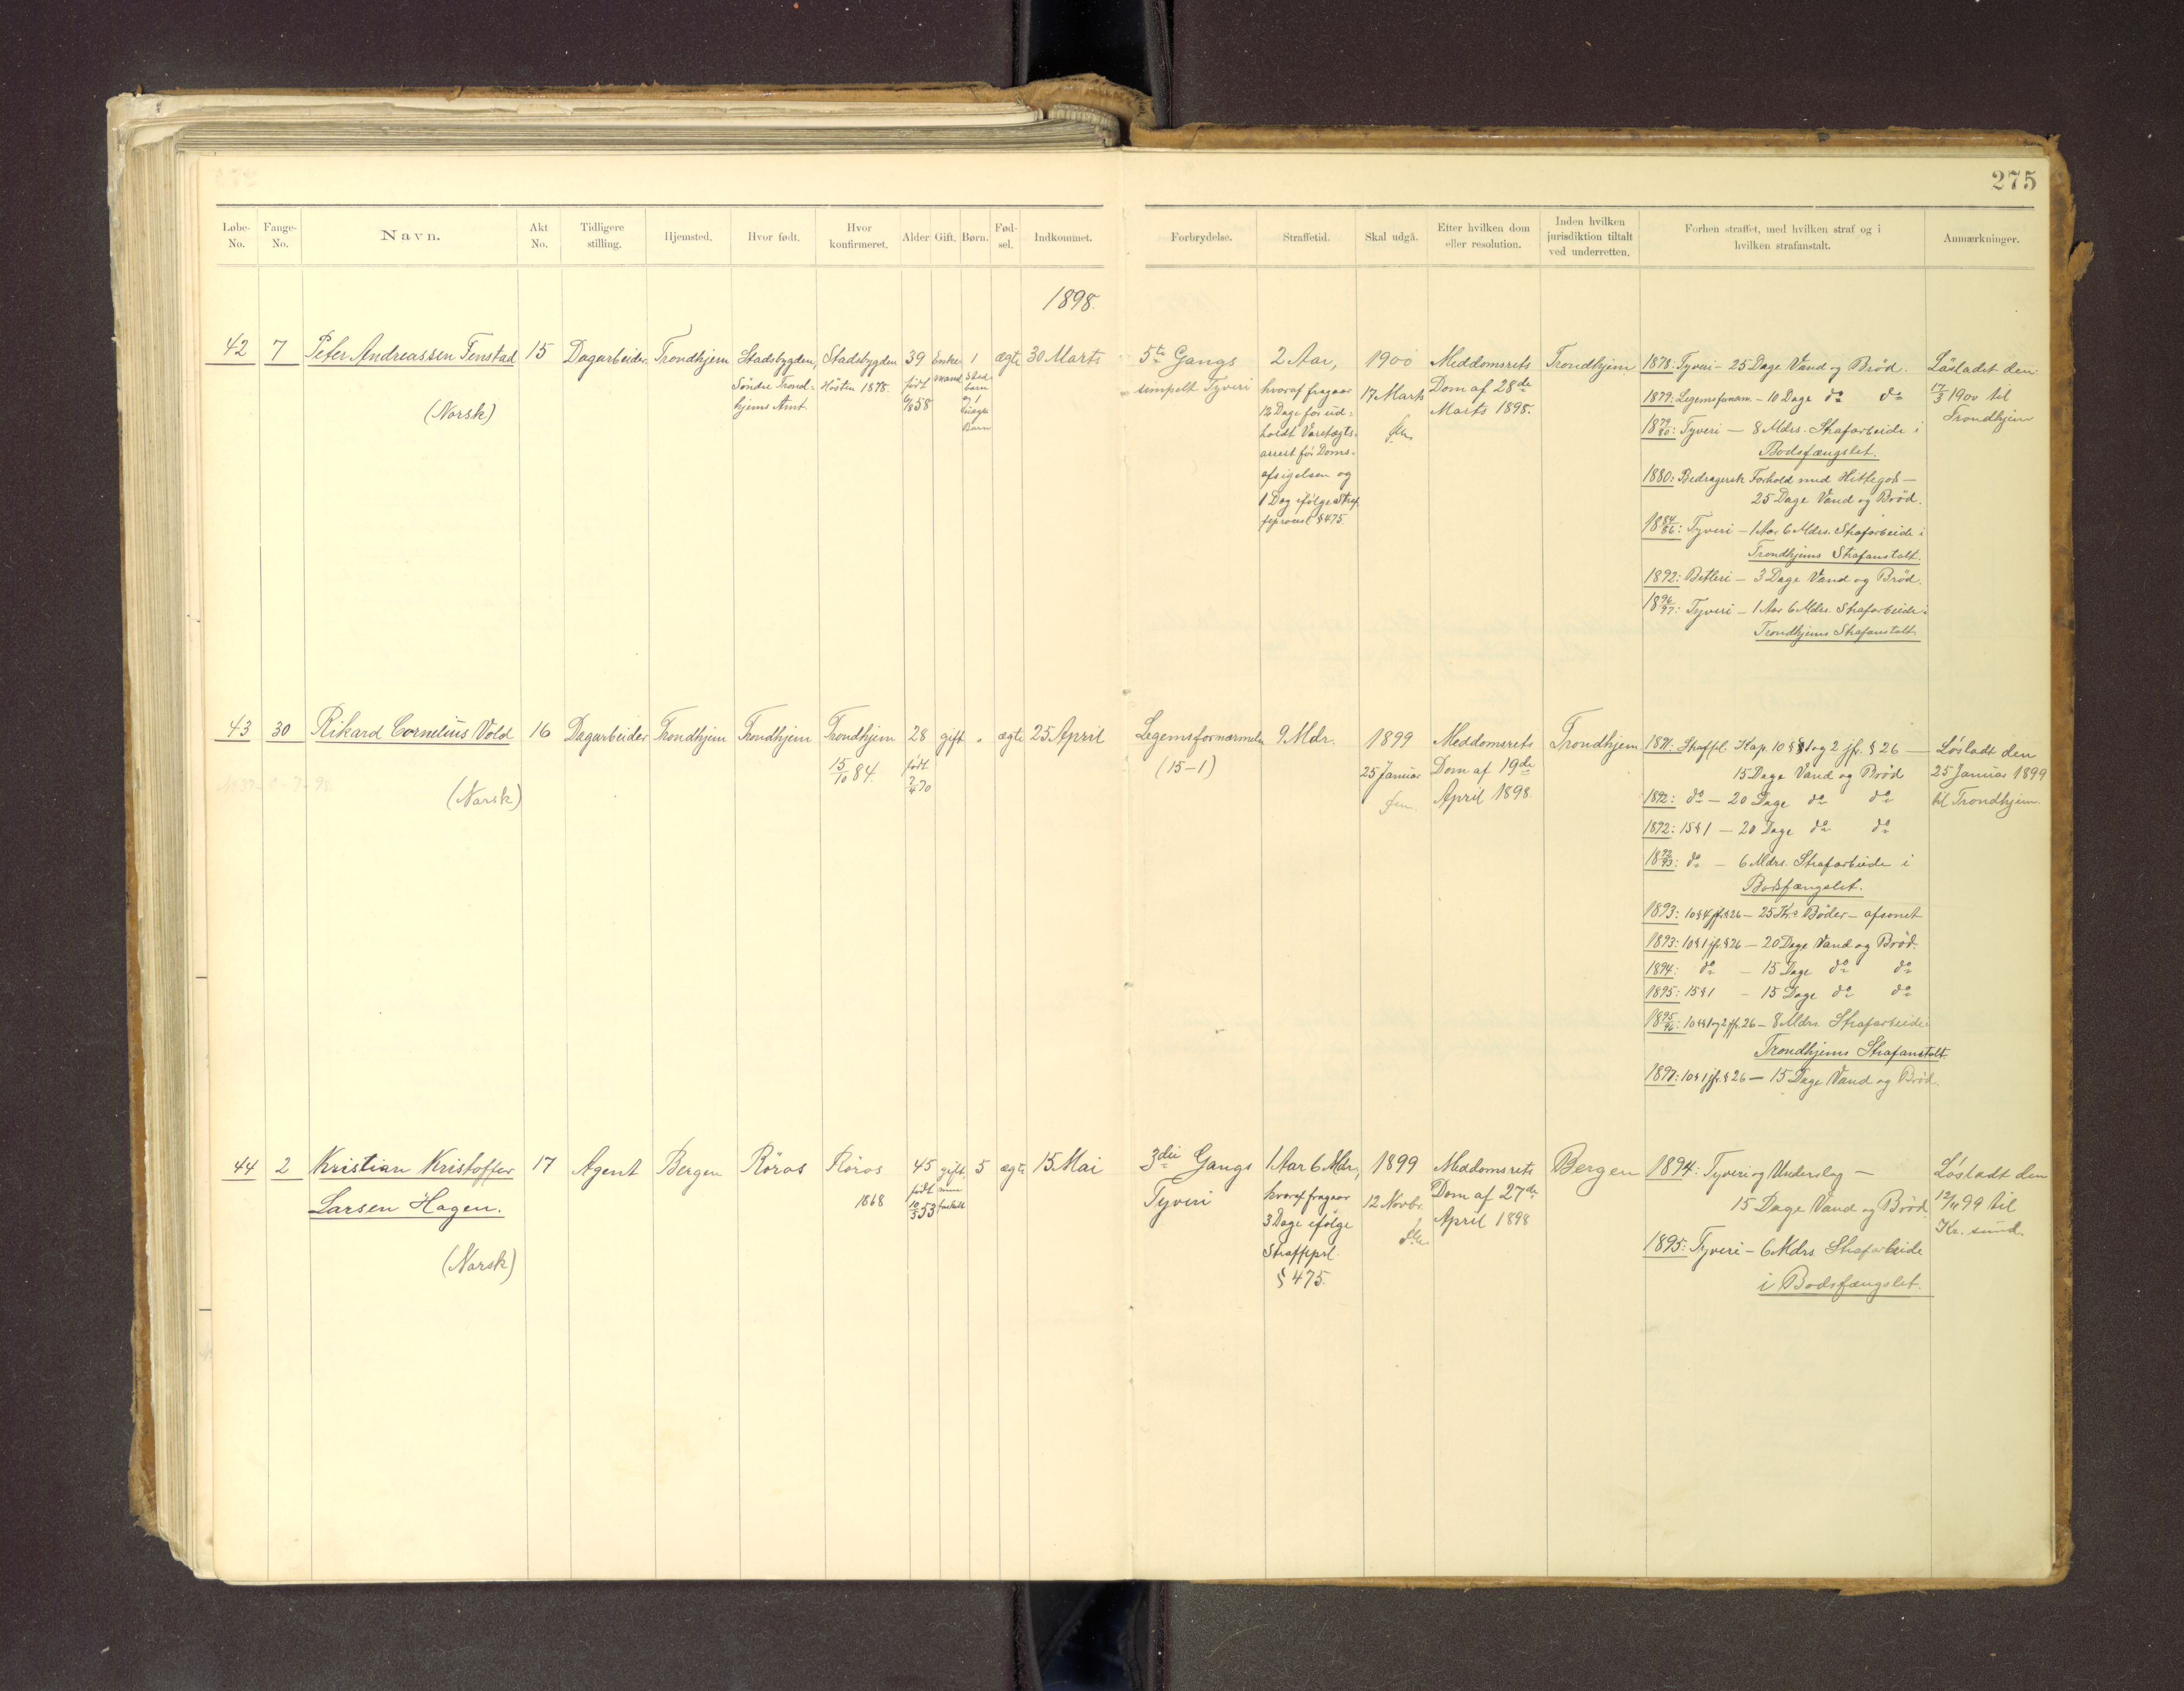 275
Løbe-No.
Fange-No.
Navn.
Akt No.
Tidligere stilling.
Hjemsted.
Hvor født.
Hvor konfirmeret.
Alder
Gift.
Børn.
Fød-sel.
Indkommet.
Forbrydelse.
Straffetid.
Skal udgå.
Efter hvilken dom eller resolution.
Inden hvilken jurisdiktion tiltalt ved underretten.
Forhen straffet, med hvilken straf og i hvilken strafanstalt.
Anmærkninger.
1898.
42
7
Peter Andreassen Fenstad
(Norsk)
15
Dagarbeider
Trondhjem
Stadsbygden,
Søndre Trond=
hjems Amt.
Stadsbygden
Høsten 1878.
39
født
6/8 58
Enke
mand
1
ægte
30 Marts
5te Gangs
simpelt Tyveri
2 Aar,
hvoraf fragaar
12 Dage for ud=
holdt Varetægts=
arrest før Doms=
afsigelsen og
1 Dag ifølge Straf
feproces § 475.
1900
17 Marts
Meddomsrets
Dom af 28de
Marts 1898.
Trondhjem
1878: Tyveri - 25 Dage Vand og Brød.
1879: Legemsfornærm. - 10 Dage do do
1879/80: Tyveri - 8 Mdrs. Strafarbeide i
Bodsfængslet.
1880: Bedragersk Forhold med Hittegods -
25 Dage Vand og Brød.
1884/86: Tyveri - 1 Aar 6 Mdrs. Strafarbeide i
Trondhjems Strafanstalt.
1892: Betleri - 3 Dage Vand og Brød.
1896/97: Tyveri - 1 Aar 6 Mdrs. Strafarbeide i
Trondhjems Strafanstalt
Løsladet den
17/3 1900 til
Trondhjem
43
30
Rikard Cornelius Vold
(Norsk)
16
Dagarbeider
Trondhjem
Trondhjem
Trondhjem
15/10 84.
28
født
2/4 70
gift
"
ægte
25 April
Legemsfornærmelse
(15-1)
9 Mdr.
1899
25 Januar
Meddomsrets
Dom af 19de
April 1898.
Trondhjem
1891: Straffel. Kap. 10 §§ 1 og 2 jfr. § 26 -
15 Dage Vand og Brød
1892: do - 20 Dage do do
1892: 15 § 1 - 20 Dage do do
1892/93: do - 6 Mdrs. Strafarbeide i
Bodsfængslet.
1893: 10 § 4 jfr. § 26 - 25 Kr. Bøder - afsonet
1893: 10 § 1 jfr. § 26 - 20 Dage Vand og Brød.
1894: do - 15 Dage do do
1895: 15 § 1 - 15 Dage do do
1895/96: 10 §§ 1 og 2 jfr. 26 - 8 Mdrs. Strafarbeide i
Trondhjems Strafanstalt
1897: 10 § 1 jfr. § 26 - 15 Dage Vand og Brød.
Løsladt den
25 Januar 1899
til Trondhjem.
44
2
Kristian Kristoffer
Larsen Hagen.
(Norsk)
17
Agent
Bergen
Røros
Røros
1868
45
født
10/3 53
gift
men
fraskilt
5
ægte
15 Mai
3die Gangs
Tyveri
1 Aar 6 Mdr,
hvoraf fragaar
3 Dage ifølge
Straffeprl.
§ 475.
1899
12 Novbr.
Meddomsrets
Dom af 27de
April 1898
Bergen
1894: Tyveri og Underslag -
15 Dage Vand og Brød
1895: Tyveri - 6 Mdrs. Strafarbeide
i Bodsfængslet.
Løsladt den
12/11 99 til
Kr. sund.